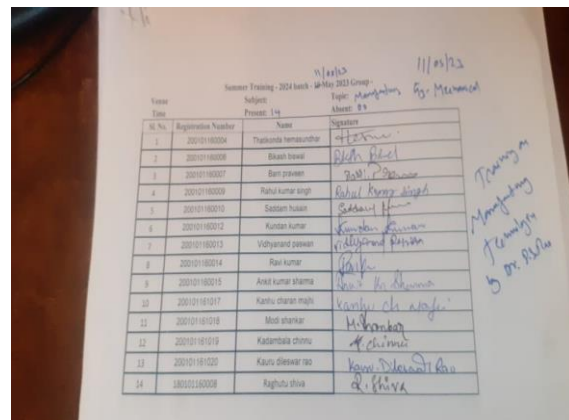 11/05/23
11/05/23
Summer Training - 2024 batch - 10 May 2023 Group -
Venue Subject: Topic: Manufacturing Eg. Mechanical
Time Present: 14 Absent: 00
Sl. No. Registration Number Name Signature
1 200101160004 Thatikonda hemasundhar
2 200101160006 Bikash biswal
3 200101160007 Barri praveen
4 200101160009 Rahul kumar singh Rahul Kumar Singh
5 200101160010 Saddam husain
6 200101160012 Kundan kumar Kundan Kumar
7 200101160013 Vidhyanand paswan Vidhyanand Paswan
8 200101160014 Ravi kumar
9 200101160015 Ankit kumar sharma
10 200101161017 Kanhu charan majhi Kanhu ch majhi
11 200101161018 Modi shankar M. Shankar
12 200101161019 Kadambala chinnu K. chinnu
13 200101161020 Kauru dileswar rao Kauru. Dileswar Rao
14 180101160008 Raghutu shiva R. Shiva
Training on
Manufacturing
Technology
by Dr.